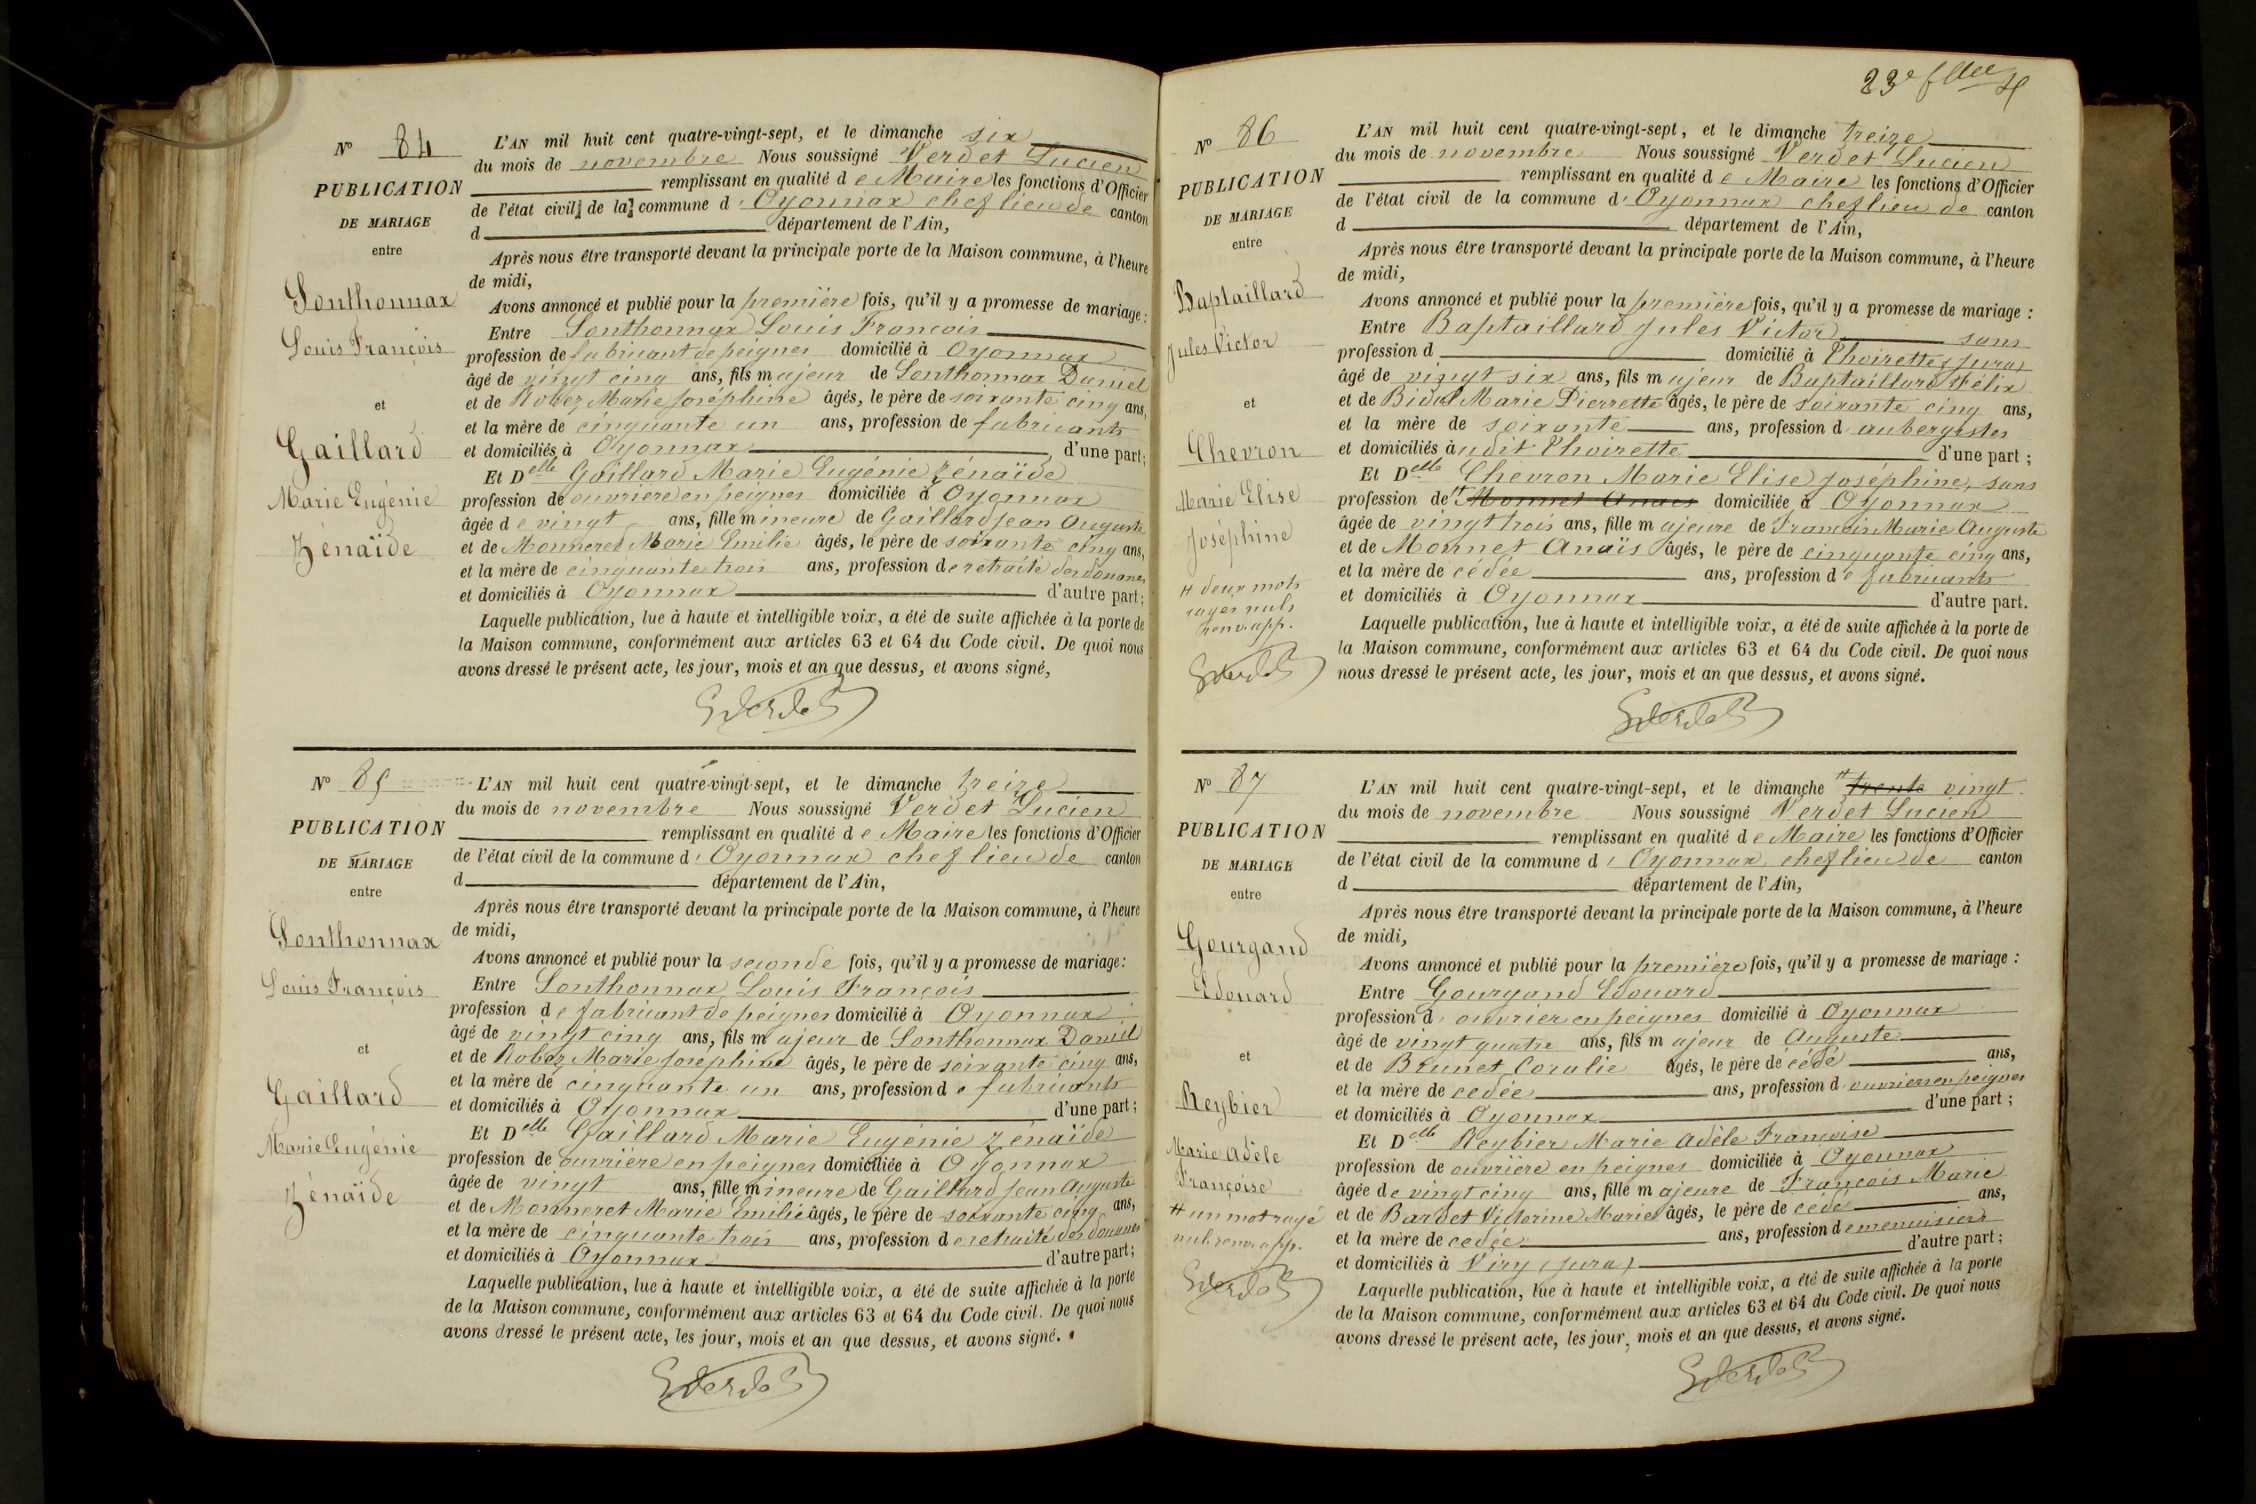 Nº 84
PUBLICATION
DE MARIAGE
entre
Sonthonnax
Louis François
et
Gaillard
Marie Eugénie
Zénaïde
L'AN mil huit cent quatre-vingt-sept, et le dimanche six
du mois de novembre Nous soussigné Verdet Lucien
remplissant en qualité de Maire les fonctions d'Officier
de l'état civil de la commune d'Oyonnax chef lieu de canton
d département de l'Ain,
Après nous être transporté devant la principale porte de la Maison commune, à l'heure
de midi,
Avons annoncé et publié pour la première fois, qu'il y a promesse de mariage :
Entre Sonthonnax Louis François
profession de fabricant de peignes domicilié à Oyonnax
âgé de vingt cinq ans, fils majeur de Sonthonnax Daniel
et de Robez Marie Joséphine âgés, le père de soixante cinq ans,
et la mère de cinquante un ans, profession de fabricants
et domiciliés à Oyonnax d'une part;
Et Delle Gaillard Marie Eugénie Zénaïde
profession de ouvrière en peignes domiciliée à Oyonnax
âgée de vingt ans, fille mineure de Gaillard Jean Auguste
et de Monneret Marie Emilie âgés, le père de soixante cinq ans,
et la mère de cinquante trois ans, profession de retraité des douanes
et domiciliés à Oyonnax d'autre part;
Laquelle publication, lue à haute et intelligible voix, a été de suite affichée à la porte de
la Maison commune, conformément aux articles 63 et 64 du Code civil. De quoi nous
avons dressé le présent acte, les jour, mois et an que dessus, et avons signé,
Verdet
Nº 85
PUBLICATION
DE MARIAGE
entre
Sonthonnax
Louis François
et
Gaillard
Marie Eugénie
Zénaïde
L'AN mil huit cent quatre-vingt-sept, et le dimanche treize
du mois de novembre Nous soussigné Verdet Lucien
remplissant en qualité de Maire les fonctions d'Officier
de l'état civil de la commune d'Oyonnax chef lieu de canton
d département de l'Ain,
Après nous être transporté devant la principale porte de la Maison commune, à l'heure
de midi,
Avons annoncé et publié pour la seconde fois, qu'il y a promesse de mariage :
Entre Sonthonnax Louis François
profession de fabricant de peignes domicilié à Oyonnax
âgé de vingt cinq ans, fils majeur de Sonthonnax Daniel
et de Robez Marie Joséphine âgés, le père de soixante cinq ans,
et la mère de cinquante un ans, profession de fabricants
et domiciliés à Oyonnax d'une part;
Et Delle Gaillard Marie Eugénie Zénaïde
profession de ouvrière en peignes domiciliée à Oyonnax
âgée de vingt ans, fille mineure de Gaillard Jean Auguste
et de Monneret Marie Emilie âgés, le père de soixante cinq ans,
et la mère de cinquante trois ans, profession de retraité des douanes
et domiciliés à Oyonnax d'autre part;
Laquelle publication, lue à haute et intelligible voix, a été de suite affichée à la porte
de la Maison commune, conformément aux articles 63 et 64 du Code civil. De quoi nous
avons dressé le présent acte, les jour, mois et an que dessus, et avons signé.
Verdet
23e
Nº 86
PUBLICATION
DE MARIAGE
entre
Baptaillard
Jules Victor
et
Chevron
Marie Elise
Joséphine
# deux mots
rayés nuls
renv. app.
Verdet
L'AN mil huit cent quatre-vingt-sept, et le dimanche treize
du mois de novembre Nous soussigné Verdet Lucien
remplissant en qualité de Maire les fonctions d'Officier
de l'état civil de la commune d'Oyonnax chef lieu de canton
d département de l'Ain,
Après nous être transporté devant la principale porte de la Maison commune, à l'heure
de midi,
Avons annoncé et publié pour la première fois, qu'il y a promesse de mariage :
Entre Baptaillard Jules Victor sans
profession d domicilié à Thoirette (Jura)
âgé de vingt six ans, fils majeur de Baptaillard Félix
et de Bidal Marie Pierrette âgés, le père de soixante cinq ans,
et la mère de soixante ans, profession d'aubergistes
et domiciliés à udit Thoirette d'une part ;
Et Delle Chevron Marie Elise Joséphine, sans
profession de # Monnet Anaïs domiciliée à Oyonnax
âgée de vingt trois ans, fille majeure de François Marie Auguste
et de Monnet Anaïs âgés, le père de cinquante cinq ans,
et la mère de cédée ans, profession de fabricants
et domiciliés à Oyonnax d'autre part.
Laquelle publication, lue à haute et intelligible voix, a été de suite affichée à la porte de
la Maison commune, conformément aux articles 63 et 64 du Code civil. De quoi nous
nous dressé le présent acte, les jour, mois et an que dessus, et avons signé.
Verdet
Nº 87
PUBLICATION
DE MARIAGE
entre
Gourgand
Edouard
et
Reybier
Marie Adèle
Françoise
# un mot rayé
nul renv. app.
Verdet
L'AN mil huit cent quatre-vingt-sept, et le dimanche # trente vingt
du mois de novembre Nous soussigné Verdet Lucien
remplissant en qualité de Maire les fonctions d'Officier
de l'état civil de la commune d'Oyonnax chef lieu de canton
d département de l'Ain,
Après nous être transporté devant la principale porte de la Maison commune, à l'heure
de midi,
Avons annoncé et publié pour la première fois, qu'il y a promesse de mariage :
Entre Gourgand Edouard
profession d'ouvrier en peignes domicilié à Oyonnax
âgé de vingt quatre ans, fils majeur de Auguste
et de Brunet Coralie âgés, le père de cédé ans,
et la mère de cedée ans, profession d'ouvriers en peignes
et domiciliés à Oyonnax d'une part ;
Et Delle Reybier Marie Adèle Françoise
profession de ouvrière en peignes domiciliée à Oyonnax
âgée de vingt cinq ans, fille majeure de François Marie
et de Bardet Victorine Marie âgés, le père de cédé ans,
et la mère de cedée ans, profession de menuisiers
et domiciliés à Viry (Jura) d'autre part ;
Laquelle publication, lue à haute et intelligible voix, a été de suite affichée à la porte
de la Maison commune, conformément aux articles 63 et 64 du Code civil. De quoi nous
avons dressé le présent acte, les jour, mois et an que dessus, et avons signé.
Verdet